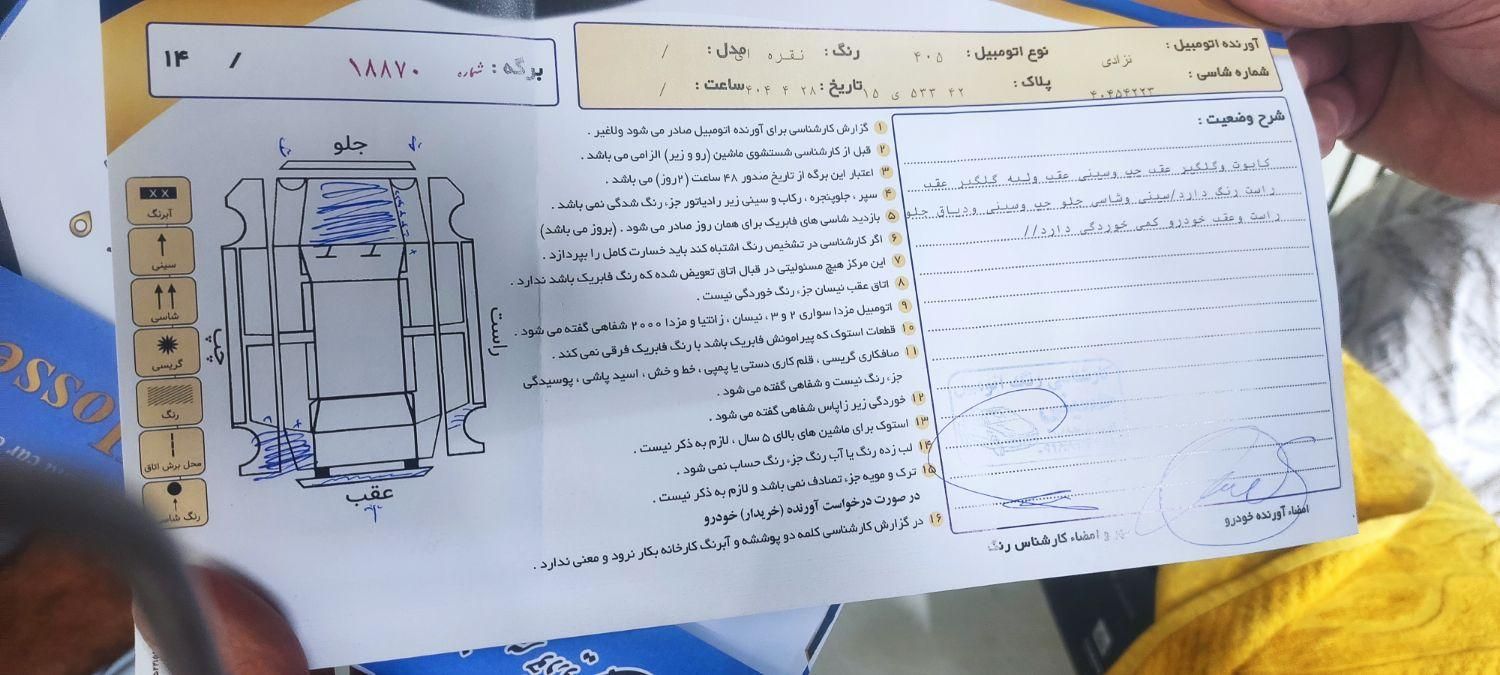 آورنده اتومبیل : نژادی
نوع اتومبیل : ۴۰۵
رنگ : نقره ای
مدل : /
شماره شاسی : ۴۰۴۵۴۲۲۳
پلاک : ۴۲ ۵۳۳ ی ۱۵
تاریخ : ۲۸ ۴ ۴۰۴
ساعت : /
برگه : شماره ۱۸۸۷۰ / ۱۴
شرح وضعیت :
کاپوت وگلگیر عقب چپ وسینی عقب ولبه گلگیر عقب
راست رنگ دارد/سینی وشاسی جلو چپ وسینی ودیاق جلو
راست وعقب خودرو کمی خوردگی دارد//
۱ گزارش کارشناسی برای آورنده اتومبیل صادر می شود ولاغیر .
۲ قبل از کارشناسی شستشوی ماشین (رو و زیر) الزامی می باشد .
۳ اعتبار این برگه از تاریخ صدور ۴۸ ساعت (۲روز) می باشد .
۴ سپر ، جلوپنجره ، رکاب و سینی زیر رادیاتور جزء رنگ شدگی نمی باشد .
۵ بازدید شاسی های فابریک برای همان روز صادر می شود . (بروز می باشد)
۶ اگر کارشناسی در تشخیص رنگ اشتباه کند باید خسارت کامل را بپردازد .
۷ این مرکز هیچ مسئولیتی در قبال اتاق تعویض شده که رنگ فابریک باشد ندارد .
۸ اتاق عقب نیسان جزء رنگ خوردگی نیست .
۹ اتومبیل مزدا سواری ۲ و ۳ ، نیسان ، زانتیا و مزدا ۲۰۰۰ شفاهی گفته می شود .
۱۰ قطعات استوک که پیرامونش فابریک باشد با رنگ فابریک فرقی نمی کند .
۱۱ صافکاری گریسی ، قلم کاری دستی یا پمپی ، خط و خش ، اسید پاشی ، پوسیدگی
جزء رنگ نیست و شفاهی گفته می شود .
۱۲ خوردگی زیر زاپاس شفاهی گفته می شود .
۱۳ استوک برای ماشین های بالای ۵ سال ، لازم به ذکر نیست .
۱۴ لب زده رنگ یا آب رنگ جزء رنگ حساب نمی شود .
۱۵ ترک و مویه جزء تصادف نمی باشد و لازم به ذکر نیست .
در صورت درخواست آورنده (خریدار) خودرو
۱۶ در گزارش کارشناسی کلمه دو پوششه و آبرنگ کارخانه بکار نرود و معنی ندارد .
امضاء آورنده خودرو
مهر و امضاء کارشناس رنگ
جلو
راست
چپ
عقب
آبرنگ
سینی
شاسی
گریسی
رنگ
محل برش اتاق
رنگ شاسی